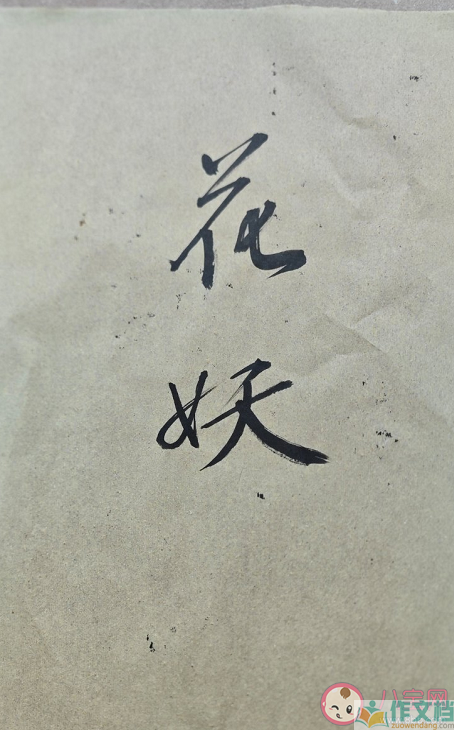 花
妖
作文档
zuowendang.com